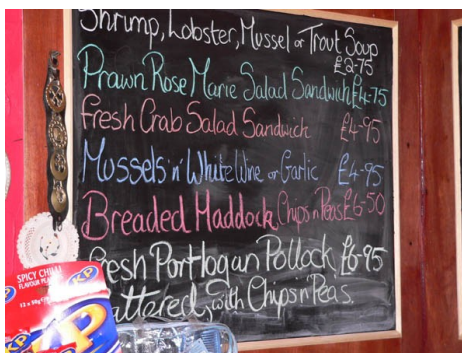 Shrimp, Lobster, Mussel or Trout Soup
£2-75
Prawn Rose Marie Salad Sandwich £4-75
Fresh Crab Salad Sandwich £4-95
Mussels n' White Wine or Garlic £4-95
Breaded Haddock Chips n Peas £6-50
Fresh Portlogan Pollock £6-95
Battered, with Chips n' Peas.
SPICY CHILLI
FLAVOUR
KP